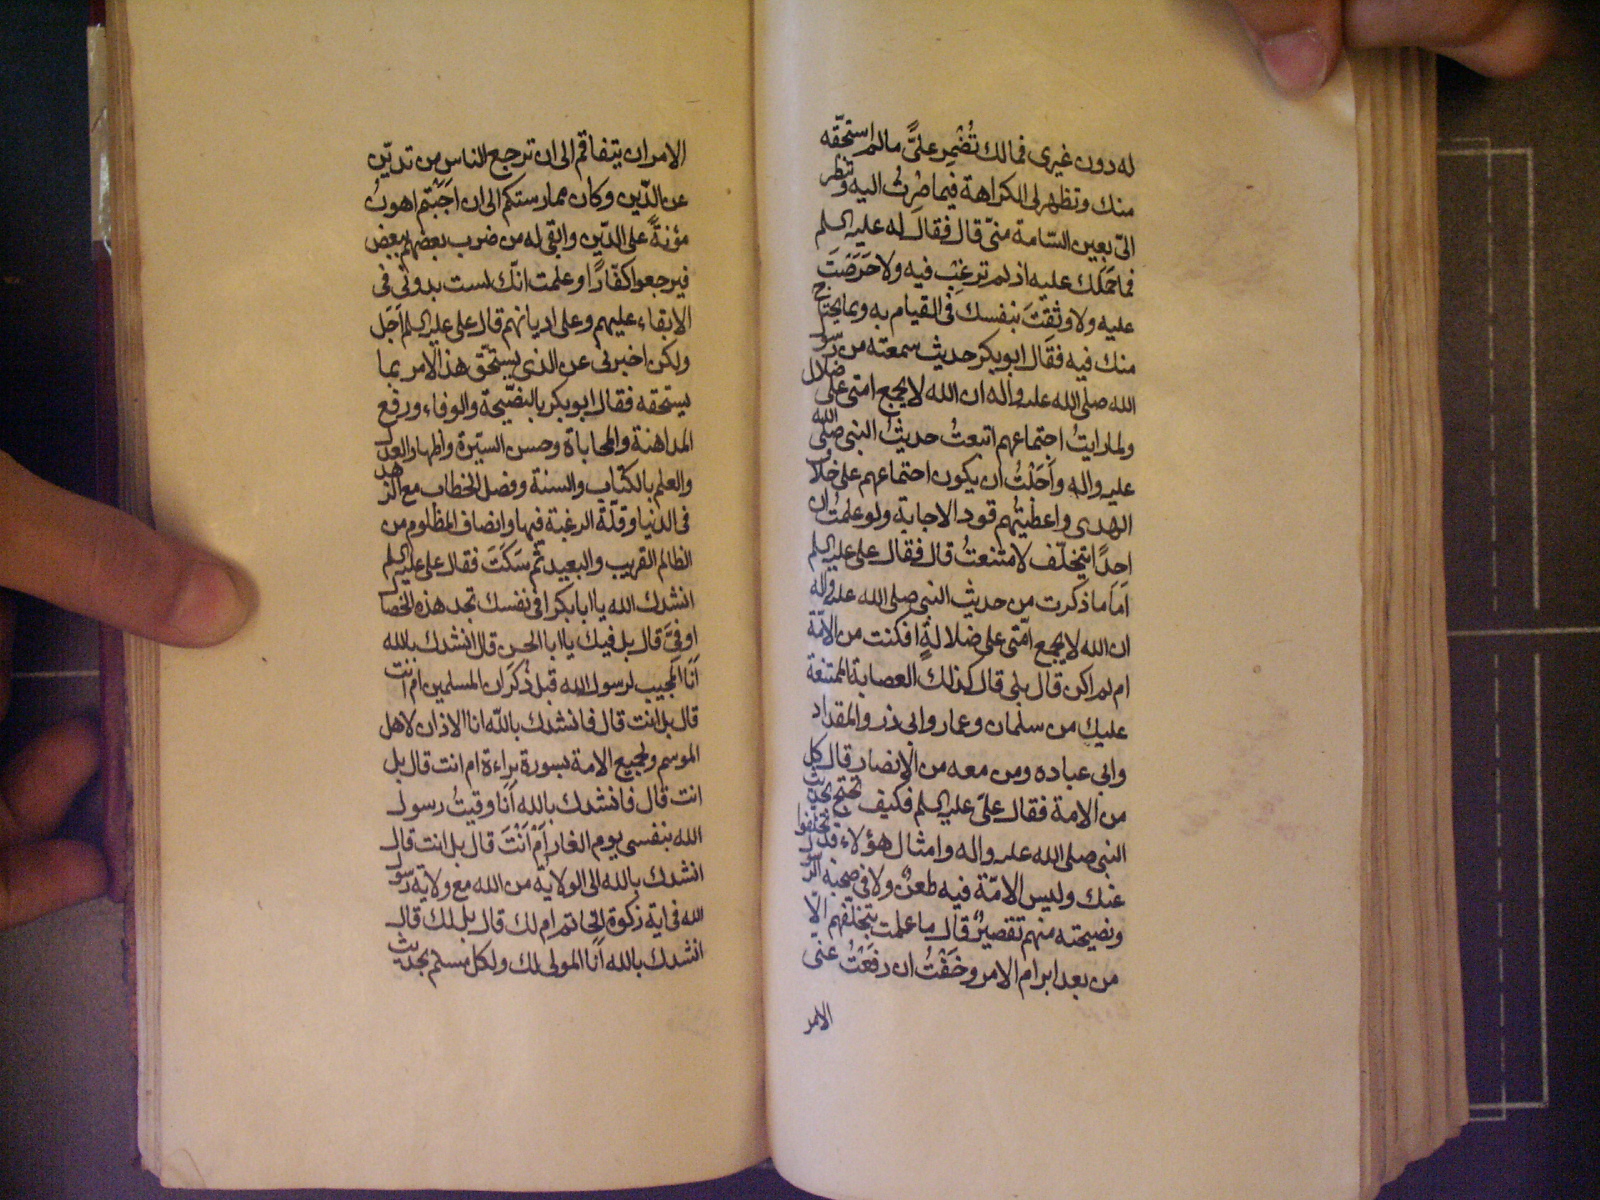 له دون غيرى فمالك تُضْمِر علىَّ مالم استحقّه
منك وتظهر لى الكراهة فيما صِرتُ اليه وتنظر
الىّ بعين السّامة منّى قال فقال له عليه السلم
فما حَمَلك عليه اذ لم ترغب فيه ولا حَرَصَتَ
عليه ولا وثقتَ بنفسك فى القيام به وبما يحتاج
منك فيه فقال ابو بكر حديث سمعته من رسول
الله صلى الله عليه واله ان الله لا يجمع امتى على ضلال
ولما رايتُ اجتماعهم اتبعتُ حديثُ النبى صلى الله
عليه واله وأَحَلْتُ ان يكون اجتماعهم على خلاف
الهدى واعطيتهم قود الاجابة ولو علمتُ ان
احدًا يتخلّف لامتنعتُ قال فقال على عليه السلم
اَمَا ما ذكرت من حديث النبى صلى الله عليه واله
ان الله لا يجمع امّتى على ضلالةٍ افكنت من الامّة
ام لم اكن قال بلى قال كذلك العصابة الممتنعة
عليك من سلمان وعمار وابى ذر والمقداد
وابى عباده ومن معه من الانصار قال كل
من الامة فقال علىّ عليه السلم فكيف تحتج بحديث
النبى صلى الله عليه واله وامثال هؤلاء قد تخلفوا
عنك وليس الامّة فيه طعنٌ ولا فى صحبة الرسول
ونصيحته منهم تقصيرٌ قال ما علمت بتخلفهم الّا
من بعد ابرام الامر وخَفْتُ ان رفَعْتُ عنى
الامر
الامر ان يتفاقم الى ان ترجع الناس من تديّن
عن الدّين وكان ممارستكم الى ان اجَبْتم اهونُ
مؤنةً على الدّين وابقى له من ضرب بعضهم ببعض
فيرجعوا كفّارًا وعلمت انّك لست بدونى فى
الابقاء عليهم وعلى اديانهم قال على عليه السلم اَجَل
ولكن اخبرنى عن الذى يستحّق هذا الامر بما
يستحقه فقال ابو بكر بالنصّيحة والوفاء ورفع
المداهنة والمحاباة وحسن السيّرة واظهار العدل
والعلم بالكتاب والسنة وفضل الخطاب مع الزهد
فى الدنيا وقلّة الرغبة فيها وانصاف المظلوم من
الظالم القريب والبعيد ثم سَكَتَ فقال على عليه السلم
انشدك الله يا ابا بكر افى نفسك تجد هذه الخصا
او فىَّ قال بل فيك يا ابا الحسن قال انشدك بالله
اَنَا المجيب لرسول الله قبل ذُكرَان المسلمين ام انت
قال بل انت قال فانشدك بالله انا الاذان لاهل
الموسم ولجميع الامة بسورة براءة ام انت قال بل
انت قال فانشدك بالله اَنَا وقيتُ رسول
الله بنفسى يوم الغار اَمْ اَنْتَ قال بل انت قال
انشدك بالله الى الولاية من الله مع ولاية رسول
الله فى اية زكوة الخاتم ام لك قال بل لك قال
انشدك بالله اَنَا المولى لك ولكل مسلم بحديث